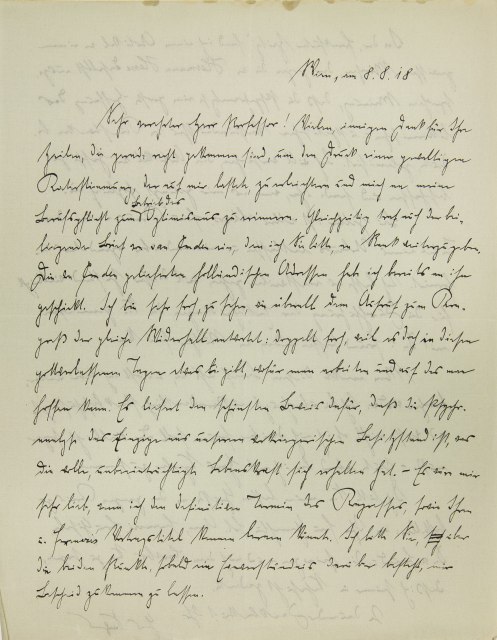 Wien, am 8.8.18
Sehr verehrter Herr Professor! Vielen, innigen Dank für Ihre
Zeilen, die gerade recht gekommen sind, um den Druck einer gewaltigen
Katerstimmung, der auf mir lastete zu erleichtern und mich an meine
Betrieb des
Berufspflicht zum Optimismus zu erinnern. Gleichzeitig traf auch der bei-
liegende Brief von van Emden ein, den ich Sie bitte, an Rank weiterzugeben.
Die von Emden geforderten holländischen Adressen habe ich bereits an ihn
geschickt. Ich bin sehr froh, zu sehen, wie überall dem Aufruf zum Kon-
greß der gleiche Widerhall antwortet; doppelt froh, weil es doch in diesen
gottverlassenen Tagen etwas gibt, wofür man arbeiten und auf das man
hoffen kann. Es liefert den schönsten Beweis dafür, daß die Psycho-
analyse das Einzige aus unserem vorkriegerischen Besitzstand ist, was
die volle, unbeeinträchtigte Lebenskraft sich erhalten hat. – Es wäre mir
sehr lieb, wenn ich den definitiven Termin des Kongresses, sowie Ihren
u. Vortragstitel kennen lernen könnte. Ich bitte Sie, über
die beiden Punkte, sobald ein Einverständnis darüber besteht, mir
Bescheid zukommen zu lassen.